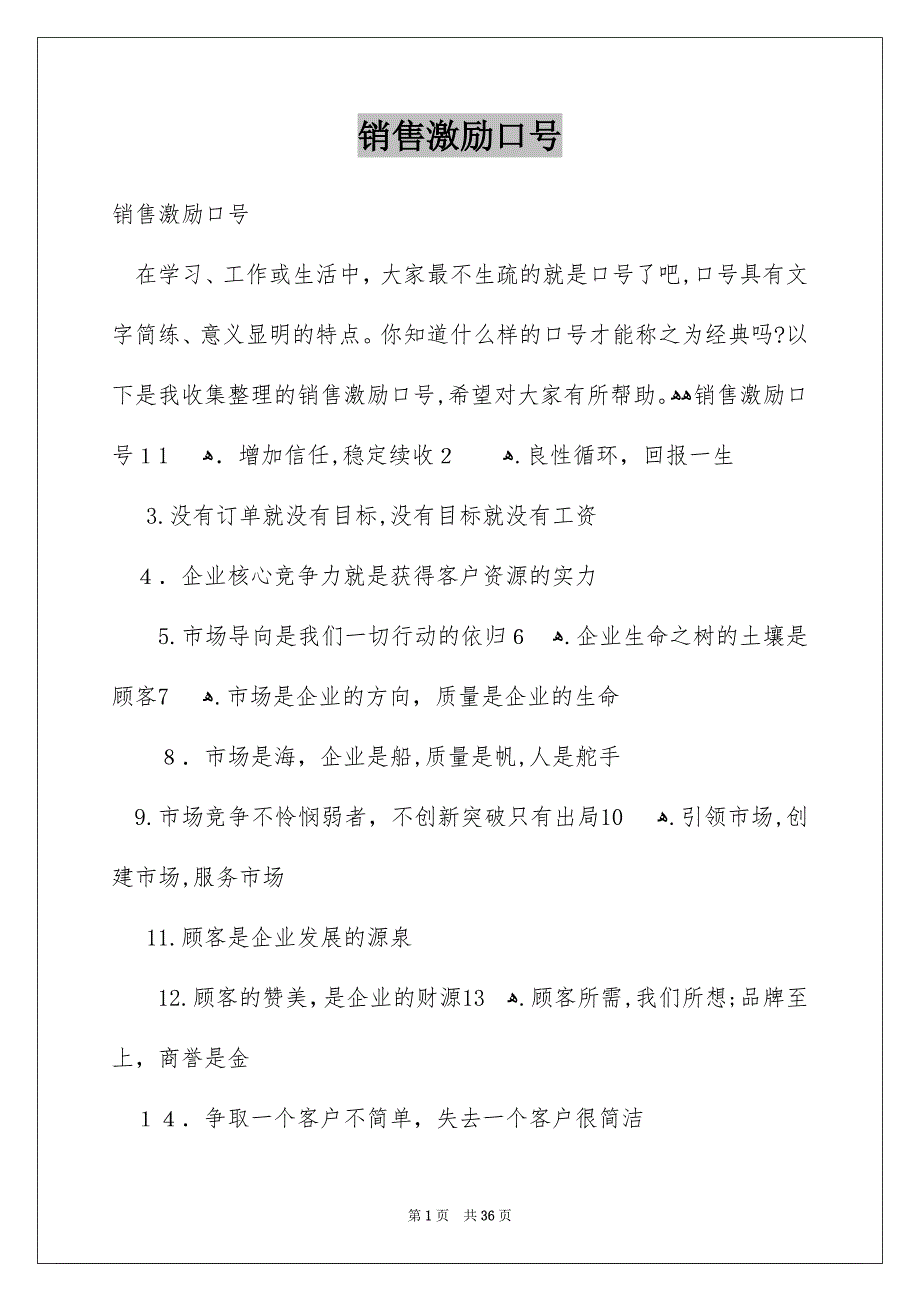 销售激励口号
销售激励口号
在学习、工作或生活中，大家最不生疏的就是口号了吧,口号具有文
字简练、意义显明的特点。你知道什么样的口号才能称之为经典吗?以
下是我收集整理的销售激励口号,希望对大家有所帮助。ﻫﻫ销售激励口
号１１ ﻫ．增加信任,稳定续收２ ﻫ.良性循环，回报一生
3.没有订单就没有目标,没有目标就没有工资
４．企业核心竞争力就是获得客户资源的实力
5.市场导向是我们一切行动的依归６ ﻫ.企业生命之树的土壤是
顾客7 ﻫ.市场是企业的方向，质量是企业的生命
８．市场是海，企业是船,质量是帆,人是舵手
9.市场竞争不怜悯弱者，不创新突破只有出局10 ﻫ.引领市场,创
建市场,服务市场
11.顾客是企业发展的源泉
12.顾客的赞美,是企业的财源13 ﻫ.顾客所需,我们所想;品牌至
上，商誉是金
１４．争取一个客户不简单，失去一个客户很简洁
第 1 页 共 36 页